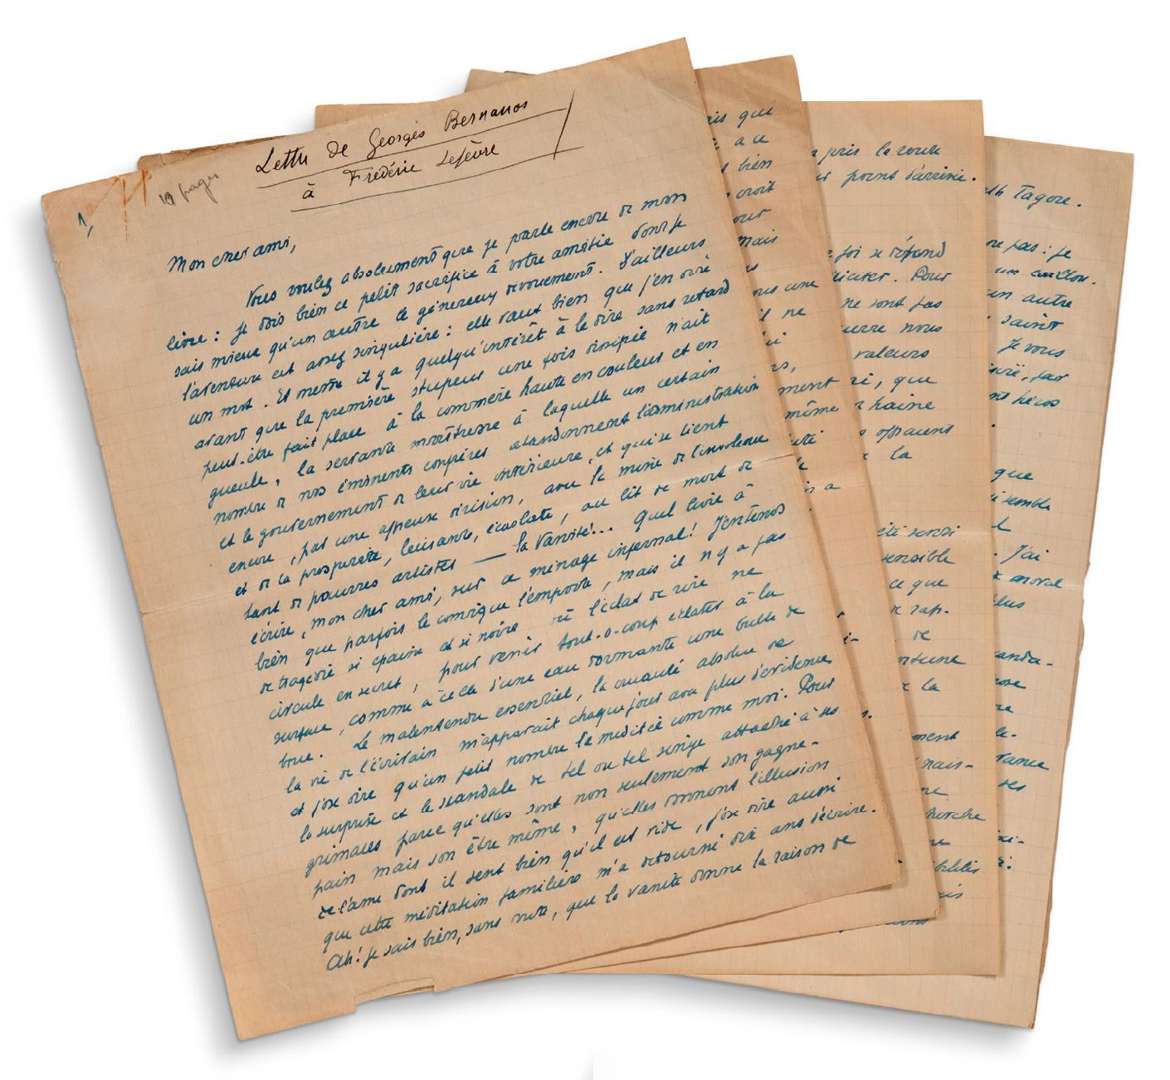 1,
19 pages
Lettre de Georges Bernanos
à Frédéric Lefèvre
Mon cher ami,
Vous voulez absolument que je parle encore de mon
livre : je dois bien ce petit sacrifice à votre amitié dont je
sais mieux qu'un autre le généreux dévouement. D'ailleurs
l'aventure est assez singulière : elle vaut bien que j'en dise
un mot. Et même il y a quelqu'intérêt à le dire sans retard
avant que la première stupeur une fois dissipée n'ait
peut-être fait place à la commère haute en couleurs et en
gueule, la servante maîtresse à laquelle un certain
nombre de nos éminents confrères abandonnent l'administration
et le gouvernement de leur vie intérieure, et qui se tient
encore, par une affreuse dérision, avec la mine de l'insolence
et de la prospérité, luisante, écarlate, au lit de mort de
tant de pauvres artistes — la Vanité!... Quel livre à
écrire, mon cher ami, sur ce ménage infernal! J'entends
bien que parfois le comique l'emporte, mais il n'y a pas
de tragédie si épaisse et si noire où l'éclat de rire ne
circule en secret, pour venir tout-à-coup éclater à la
surface, comme à celle d'une eau dormante une bulle de
boue. Le malentendu essentiel, la cruauté absolue de
la vie de l'écrivain m'apparaît chaque jour avec plus d'évidence
et j'ose dire qu'un petit nombre l'a médité comme moi. Pour
la surprise et le scandale de tel ou tel singe attaché à ses
grimaces parce qu'elles sont non seulement son gagne-
pain mais son être même, qu'elles donnent l'illusion
de l'âme dont il sent bien qu'il est vide, j'ose dire aussi
que cette méditation familière m'a détourné dix ans d'écrire.
Ah! je sais bien, sans doute, que la vanité donne la raison de
ais que
a ce
bien
croit
pour
Mais
une
il ne
ment
même
a pris la route
point d'arrivée.
foi se répand
Pour
ne sont pas
guerre nous
valeurs
que
haine
la
été
sensible
ce que
de
la
ment
nais-
cherche
Tagore.
pas : je
un caillou.
un autre
saint
Je vous
par
héros
que
semble
J'ai
moral
plus